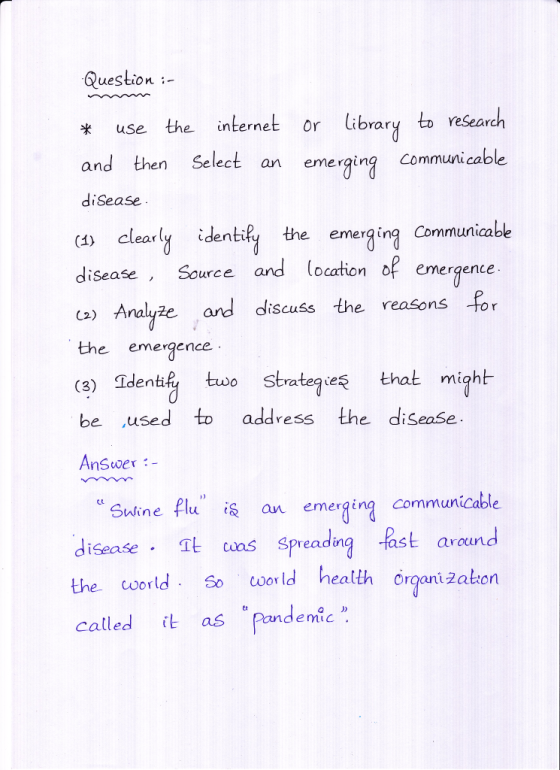 Question :-
* use the internet or library to research
and then Select an emerging communicable
disease.
(1) clearly identify the emerging communicable
disease, Source and location of emergence.
(2) Analyze and discuss the reasons for
the emergence.
(3) Identify two strategies that might
be used to address the disease.
Answer :-
"Swine flu" is an emerging communicable
disease. It was spreading fast around
the world. So world health organization
called it as "pandemic".